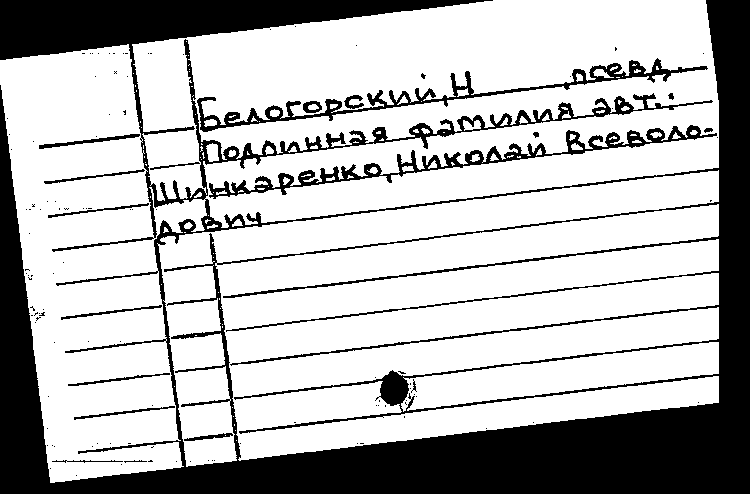 Белогорский, Н , псевд.
Подлинная фамилия авт.:
Шинкаренко, Николай Всеволо-
дович